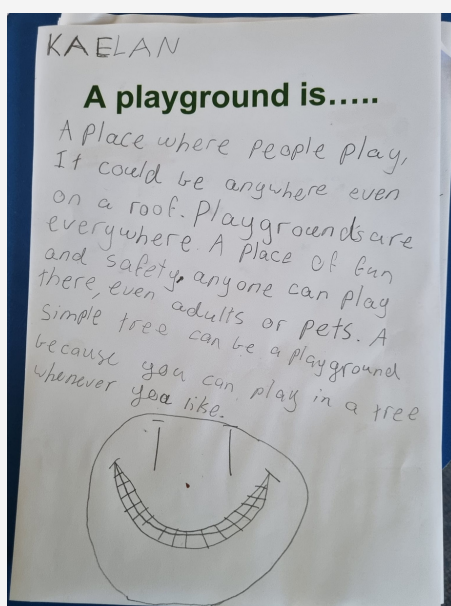 KAELAN
A playground is.....
A place where people play,
It could be anywhere even
on a roof. Playgrounds are
everywhere. A place of fun
and safety, anyone can play
there, even adults or pets. A
simple tree can be a playground
because you can play in a tree
whenever you like.